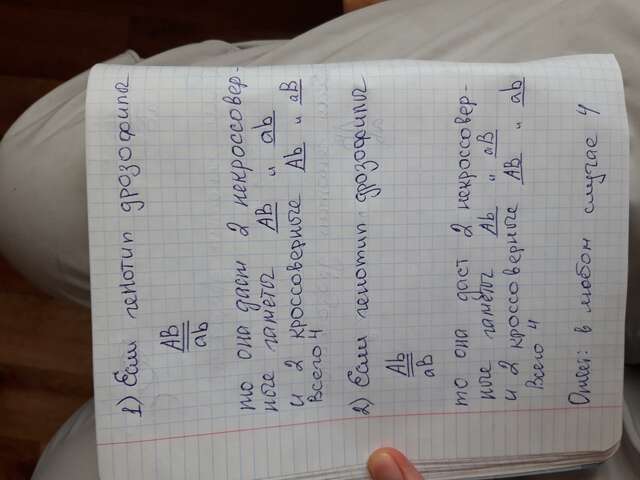 1) Если генотип дрозофила
AB
ab
то она даст 2 некроссовер-
ные гаметы AB и ab
и 2 кроссоверные Ab и aB
Всего 4
2) Если генотип дрозофила
Ab
aB
то она даст 2 некроссовер-
ные гаметы Ab и aB
и 2 кроссоверные AB и ab
Всего 4
Ответ: в любом случае 4